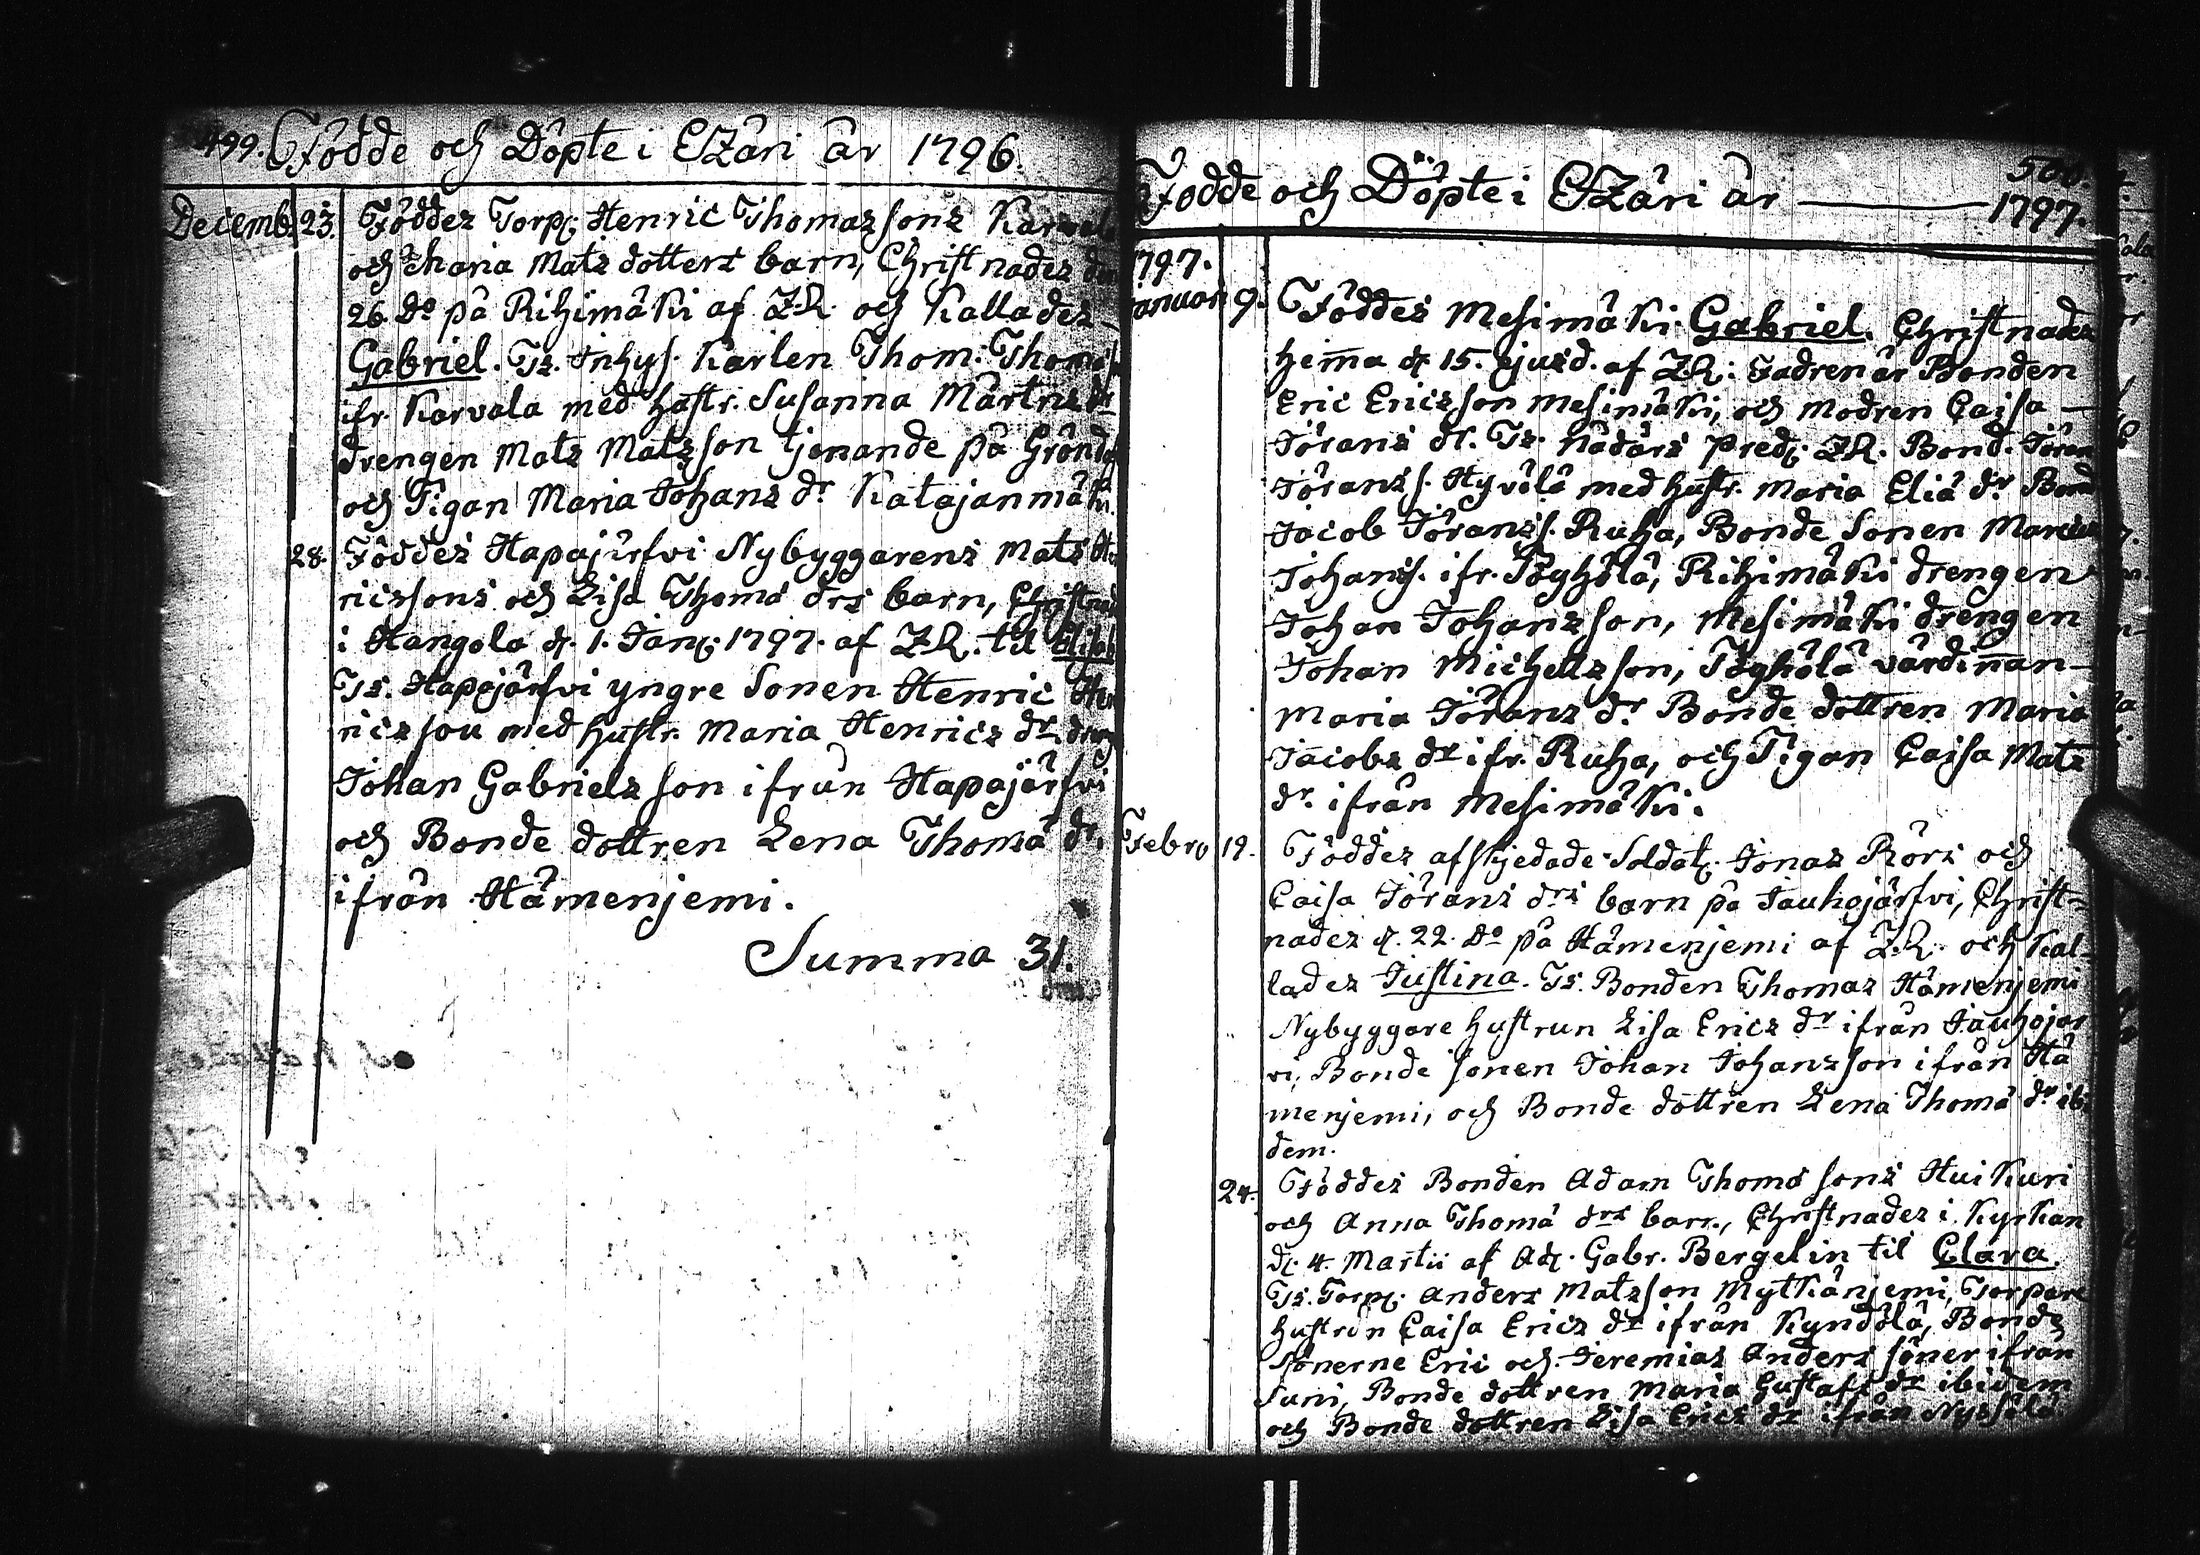 499. Födde och Döpte i Etzäri år 1796.
Decemb. 23. Föddes Torp. Henric Thomassons Karvala
och Maria Mats dotters barn, Christnades den
26 do på Rihimäki af Z.R. och Kallades
Gabriel. Ts. Inhys. Karlen Thom. Thomæ
ifr. Karvala med hustr. Susanna Mårtns dr
drengen Mats Matsson tjenande på Gröndal
och Pigan Maria Johans dr Katajanmäki.
28. Föddes Hapajärfvi Nybyggarens Mats Hen
ricssons och Lisa Thomæ drs barn, Christnad
i Hangola d. 1. Jan. 1797. af Z.R. til Elisab
Ts. Hapajärfvi yngre Sonen Henric Hen
ricsson med hustr. Maria Henrics dr, dreng
Johan Gabrielsson ifrån Hapajärfvi
och Bonde dottren Lena Thomæ dr.
ifrån Hämenjemi.
Summa 31.
500.
Födde och Döpte i Etzäri år — 1797.
1797.
Januari 9. Föddes Mesimäki Gabriel. Christnades
hem̄a d. 15. ejusd. af Z.R. Fadren är Bonden
Eric Ericsson Mesimäki, och Modren Caisa —
Jörans dr. Ts. Nådårs pred. Z.R. Bond. Jöran
Jöranss. Hyvölä med hustr. Maria Eliæ dr Bond
Jacob Jöranss. Ruha, Bonde Sonen Marcus
Johanss. ifr. Töyhölä, Rihimäki drengen
Johan Johansson, Mesimäki drengen
Johan Michellsson, Töyhölä värdin̄an
Maria Jörans dr Bonde dottren Maria
Jacobs dr ifr. Ruha, och Pigan Caisa Mats
dr. ifrån Mesimäki.
Febru 19. Föddes afskjedade Soldat. Jonas Rörs och
Caisa Jörans drs barn på Jauhojärfvi, Christ=
nades d. 22. do på Hämenjemi af Z.R. och Kal=
lades Justina. Ts. Bonden Thomas Hämenjemi
Nybyggare hustrun Lisa Erics dr ifrån Jauhojär
vi, Bonde sonen Johan Johansson ifrån Hä
menjemi, och Bonde dottren Lena Thomæ dr ibi
dem.
24. Föddes Bonden Adam Thomæ sons Huikuri
och Anna Thomæ drs barn, Christnades i Kyrkan
d. 4. Martii af Adj. Gabr. Bergelin til Clara.
Ts. Torp. Anders Matsson Mytkänjemi, Torpare
hustrun Caisa Erics dr ifrån Kyndölä, Bonde
Sönerne Eric och Jeremias Anders söner ifrån
Suni, Bonde dottren Maria Gustafs dr ibidem
och Bonde dottren Lisa Erics dr ifrån Nyssölä